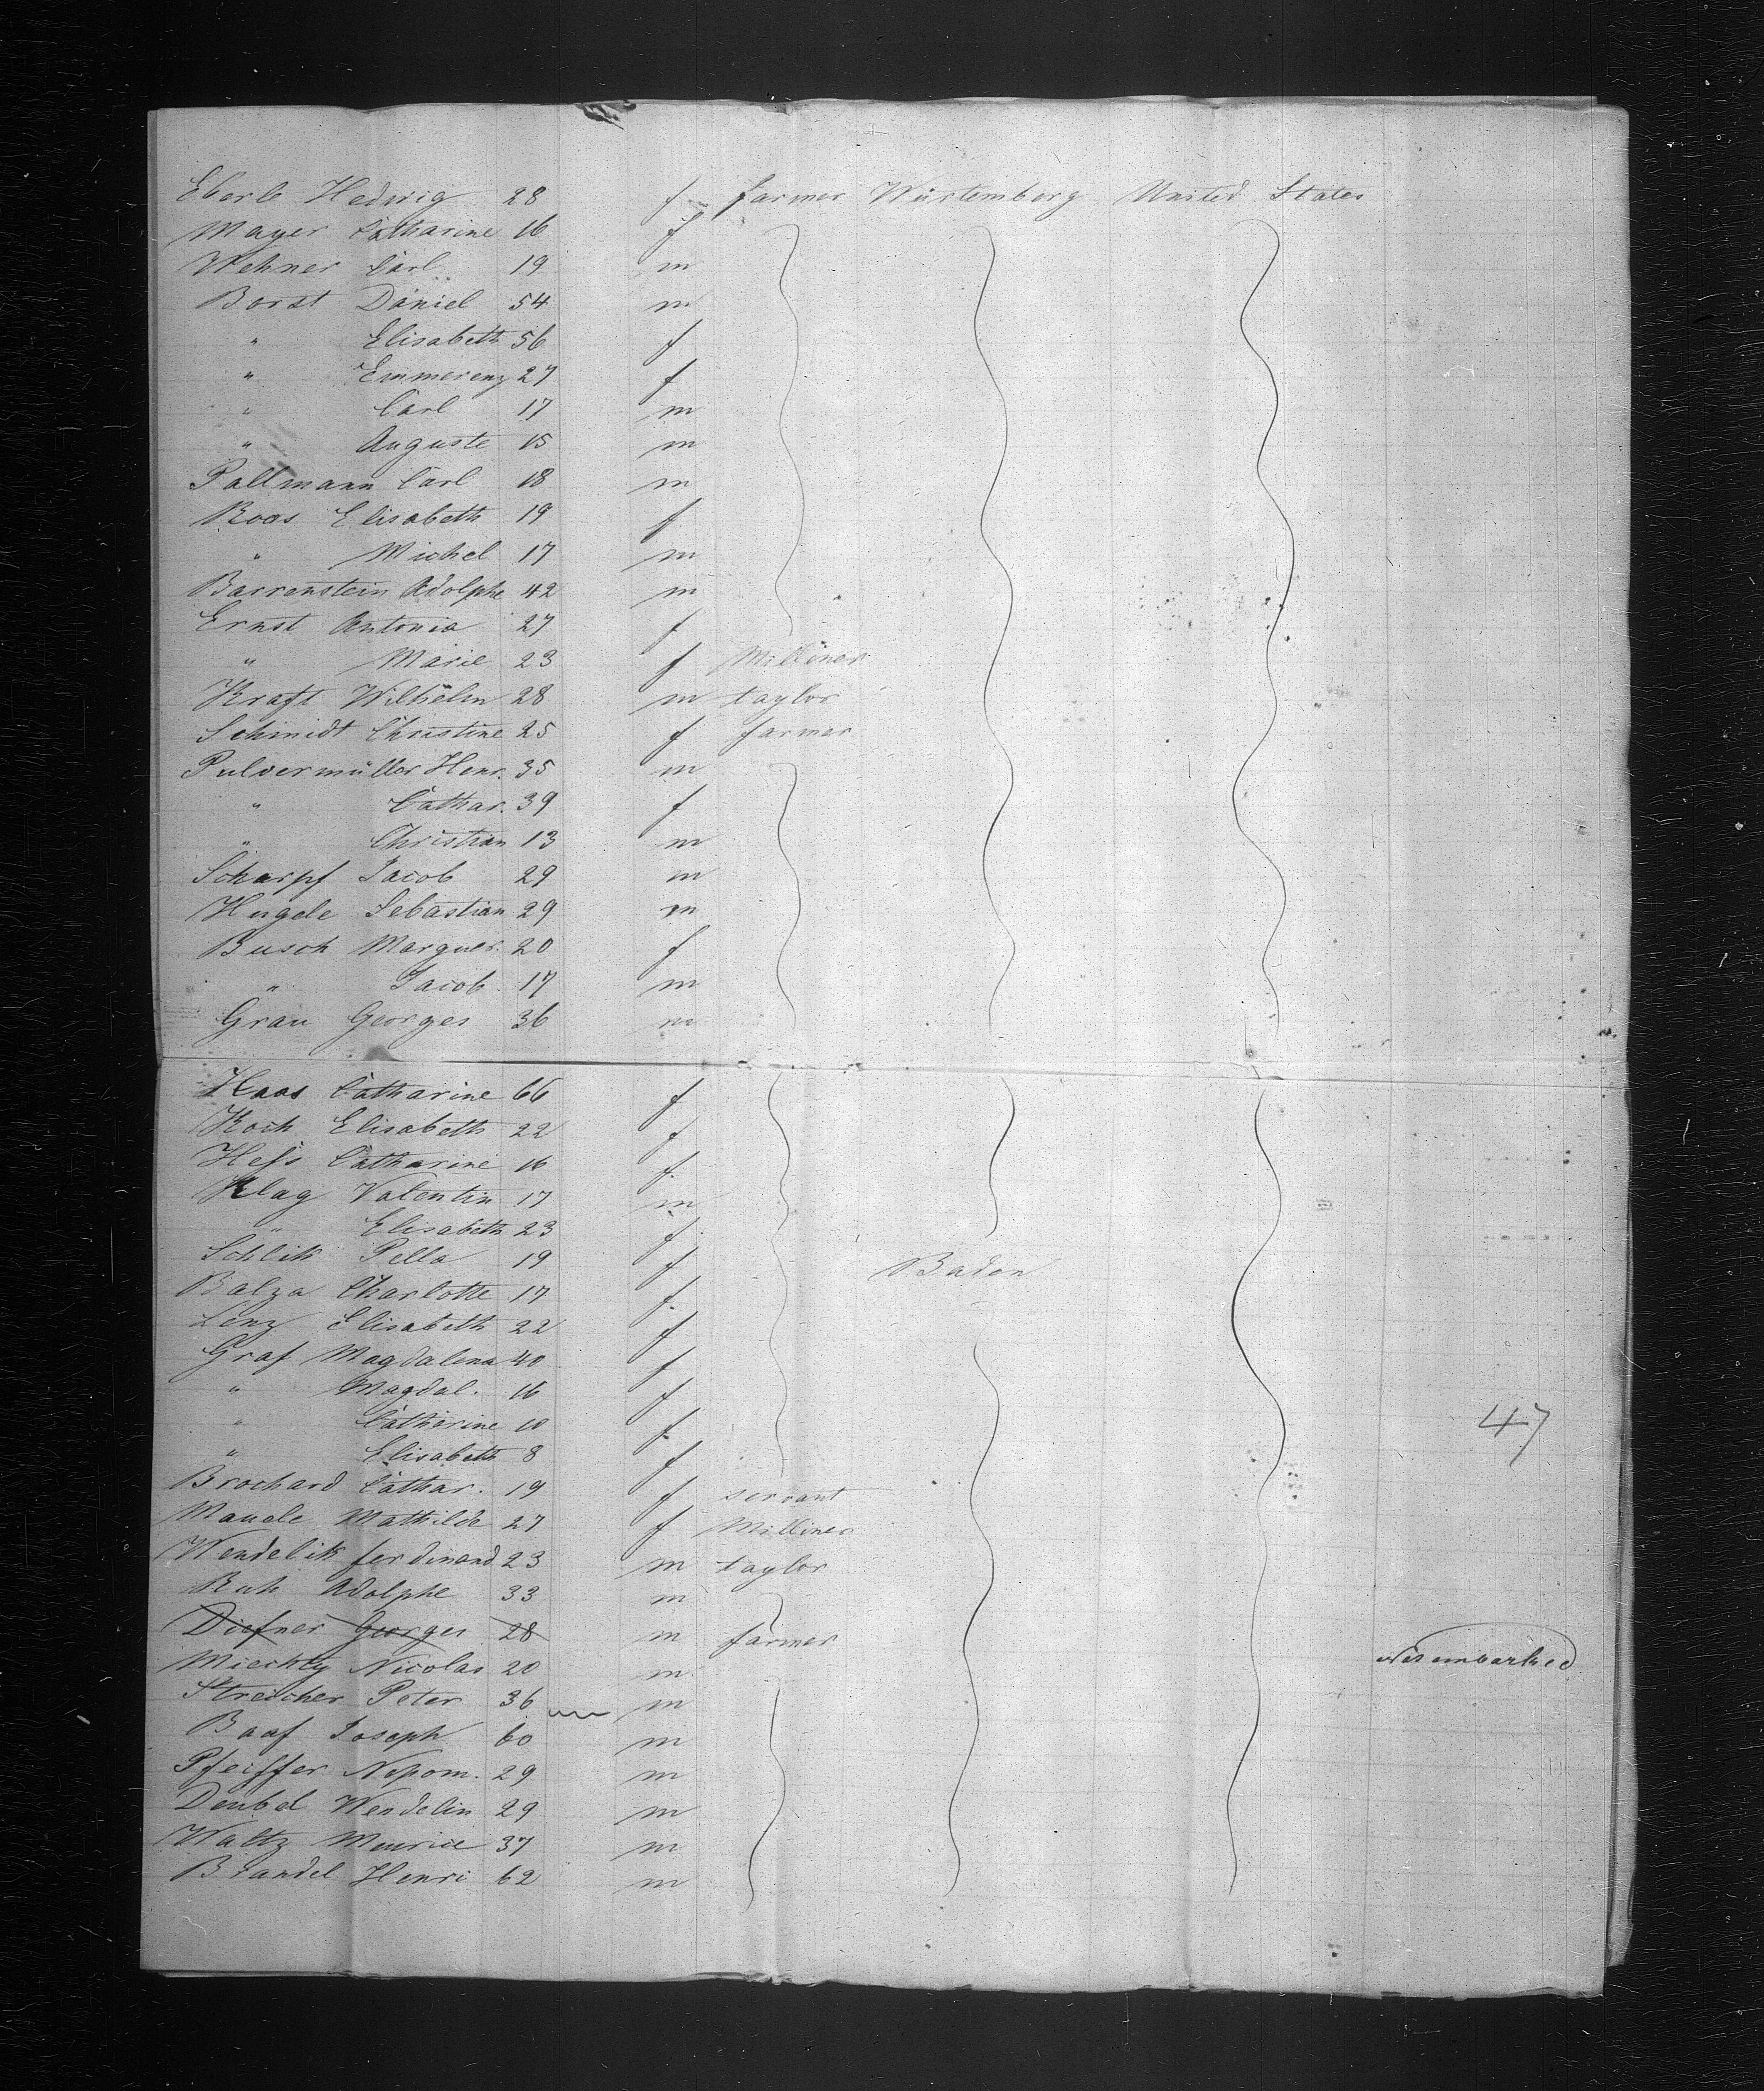 Eberle Hedwig 28 f farmer Würtemberg United States
Mayer Catharine 16 f
Wehner Carl 19 m
Borst Daniel 54 m
" Elisabeth 56 f
" Emmerenz 27 f
" Carl 17 m
" Auguste 15 m
Pallmann Carl 18 m
Roos Elisabeth 19 f
" Michel 17 m
Barrenstein Adolphe 42 m
Ernst Antonia 27 f
" Marie 23 f Milliner
Kraft Wilhelm 28 m taylor
Schmidt Christine 25 f farmer
Pulvermüller Henr. 35 m
" Cathar. 39 f
" Christian 13 m
Scharpf Jacob 29 m
Hugele Sebastian 29 m
Busch Marguer. 20 f
" Jacob 17 m
Grau Georges 36 m
Haas Catharine 66 f
Koch Elisabeth 22 f
Hess Catharine 16 f
Klag Valentin 17 m
" Elisabeth 23 f
Schlik Pella 19 f Baden
Balza Charlotte 17 f
Lenz Elisabeth 22 f
Graf Magdalena 40 f
" Magdal. 16 f
" Catharine 10 f 47
" Elisabeth 8 f
Brochard Cathar. 19 f servant
Mathilde 27 f Milliner
Wendelik ferdinand 23 m taylor
Ruh Adolphe 33 m
Diefner Georges 28 m farmer
Nicolas 20 m
Streicher Peter 36 m
Baaf Joseph 60 m
Pfeiffer Nepom. 29 m
Deubel Wendelin 29 m
Waltz Maurice 37 m
Brandel Henri 62 m